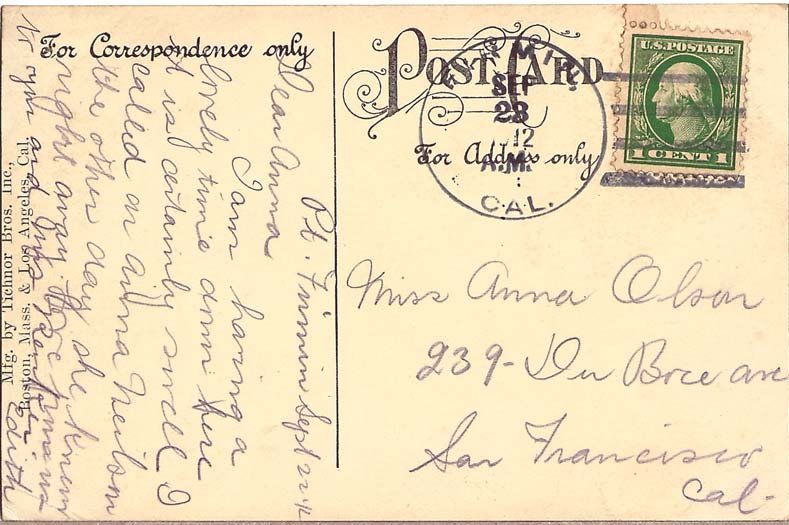 For Correspondence only
Pt. Firmin Sept 22 '12
Dear Anna
I am having a
lovely time down here
it is certainly swell I
called on Anna Neilson
the other day she knew
me right away.
to you and
Edith
Mfg. by Tichnor Bros. Inc.,
Boston, Mass. & Los Angeles, Cal.
POST CARD
For Address only
SEP
23
12
A.M.
CAL.
U.S. POSTAGE
1 CENT 1
Miss Anna Olson
239- Du Boce ave
San Francisco
Cal-